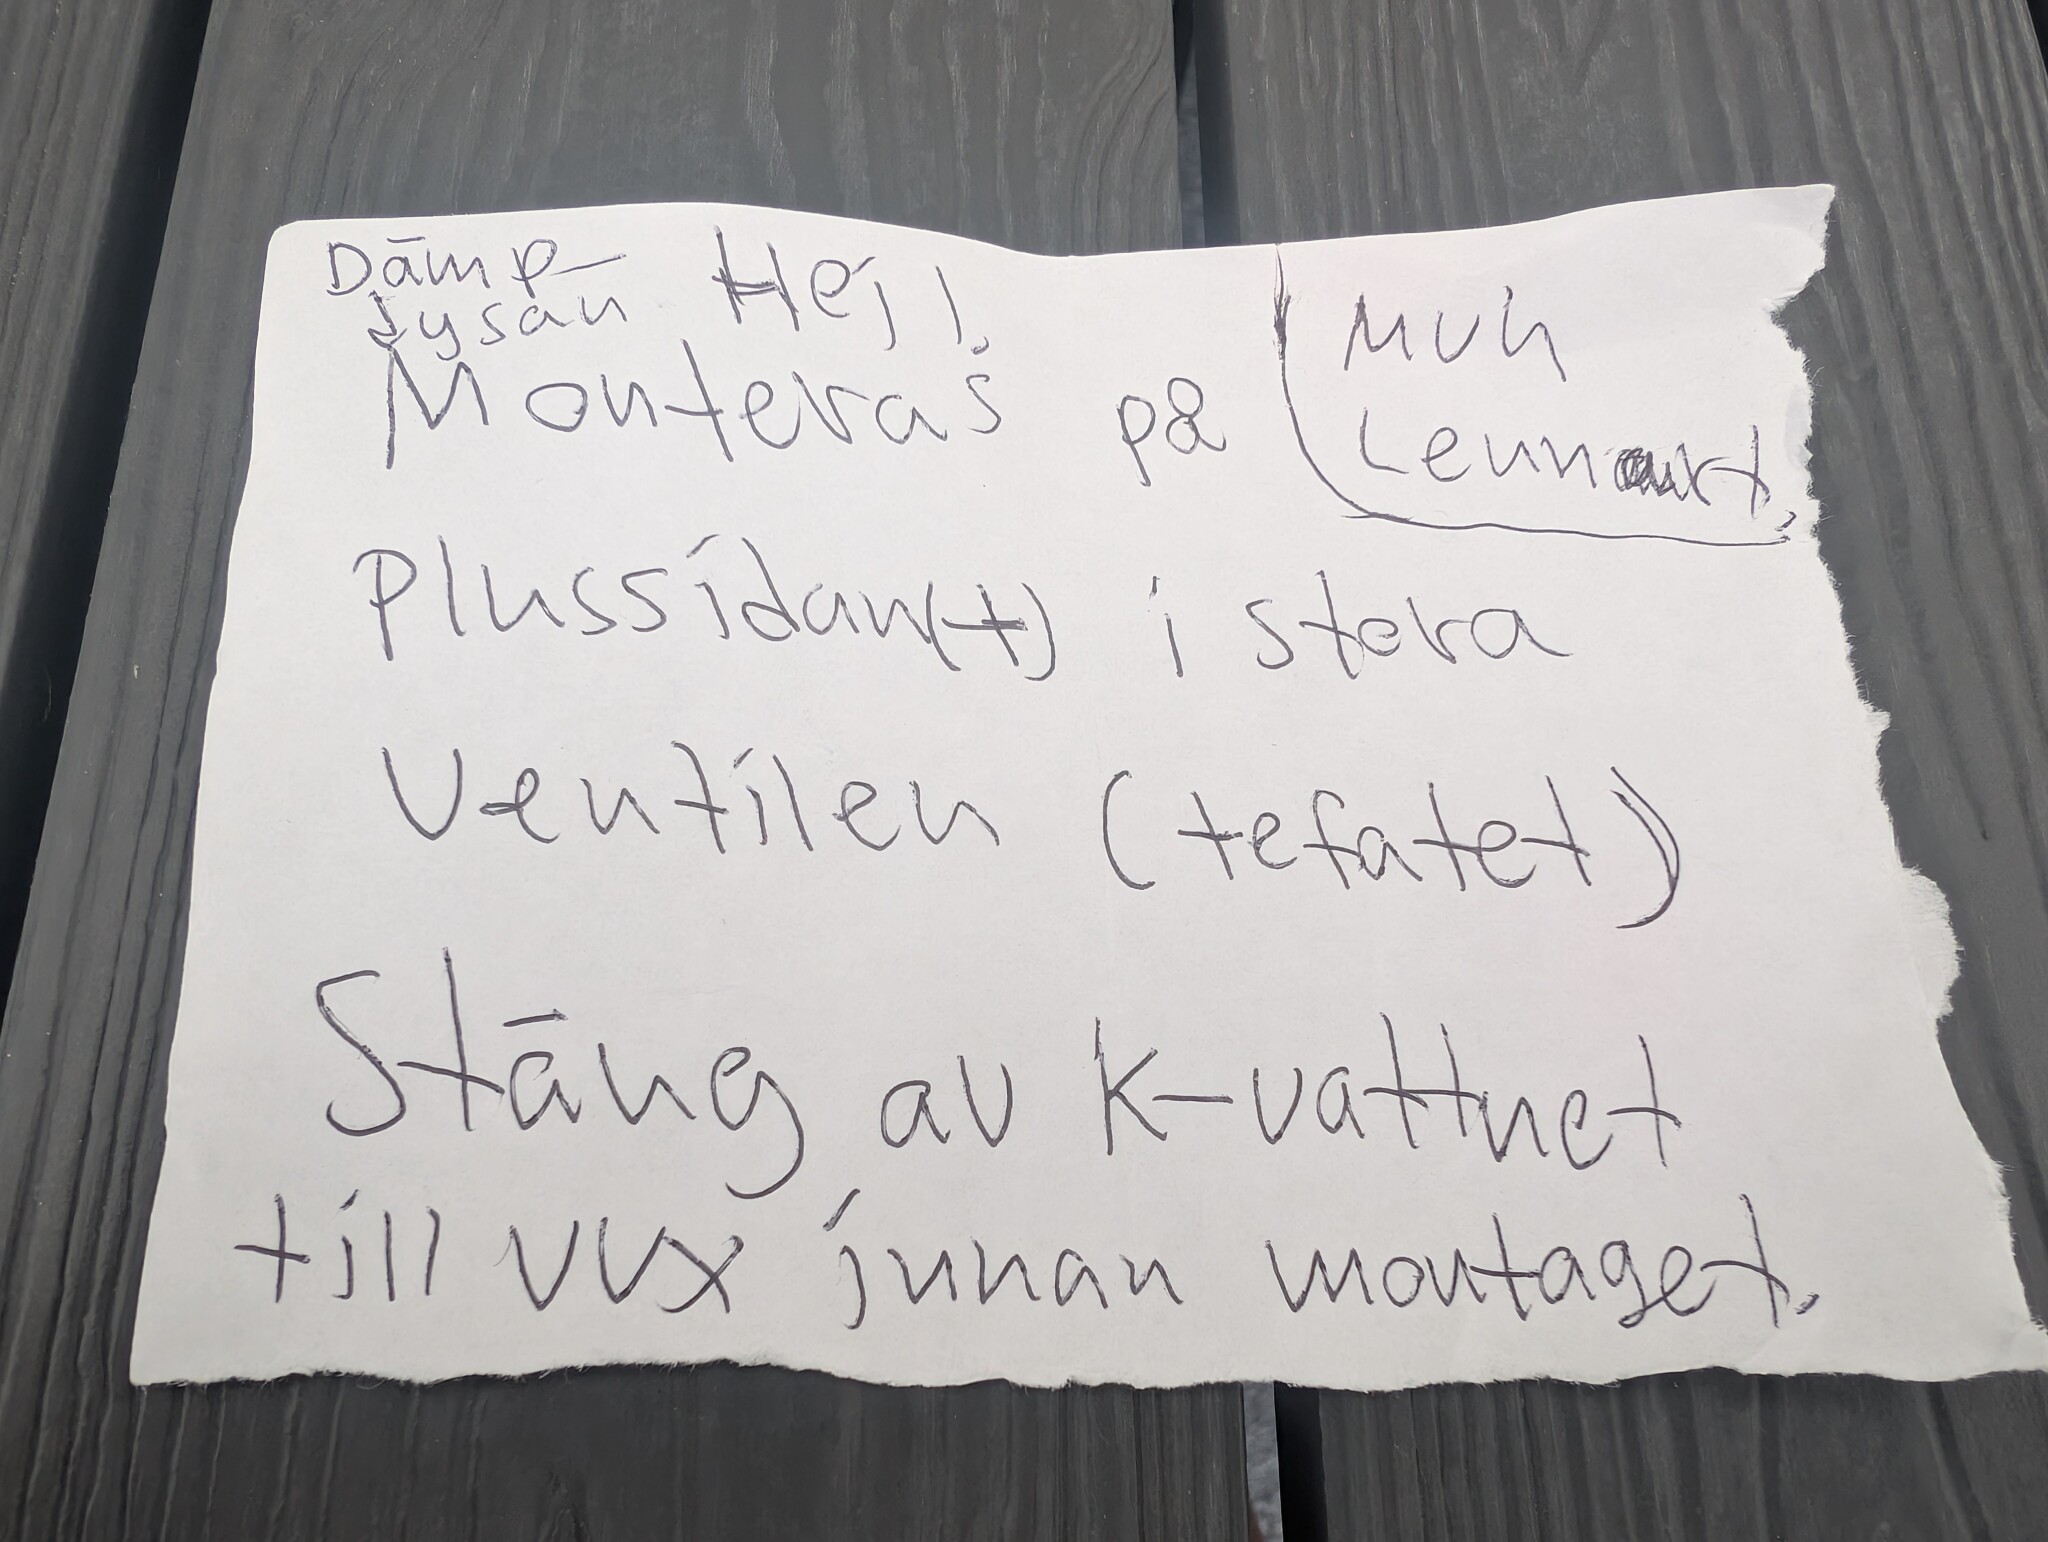 Dämp- Hej!
fysan
Monteras på
Plussidan(+) i stora
Ventilen (tefatet)
Stäng av K-vattnet
till VVX innan montaget.
MVH
Lennart.